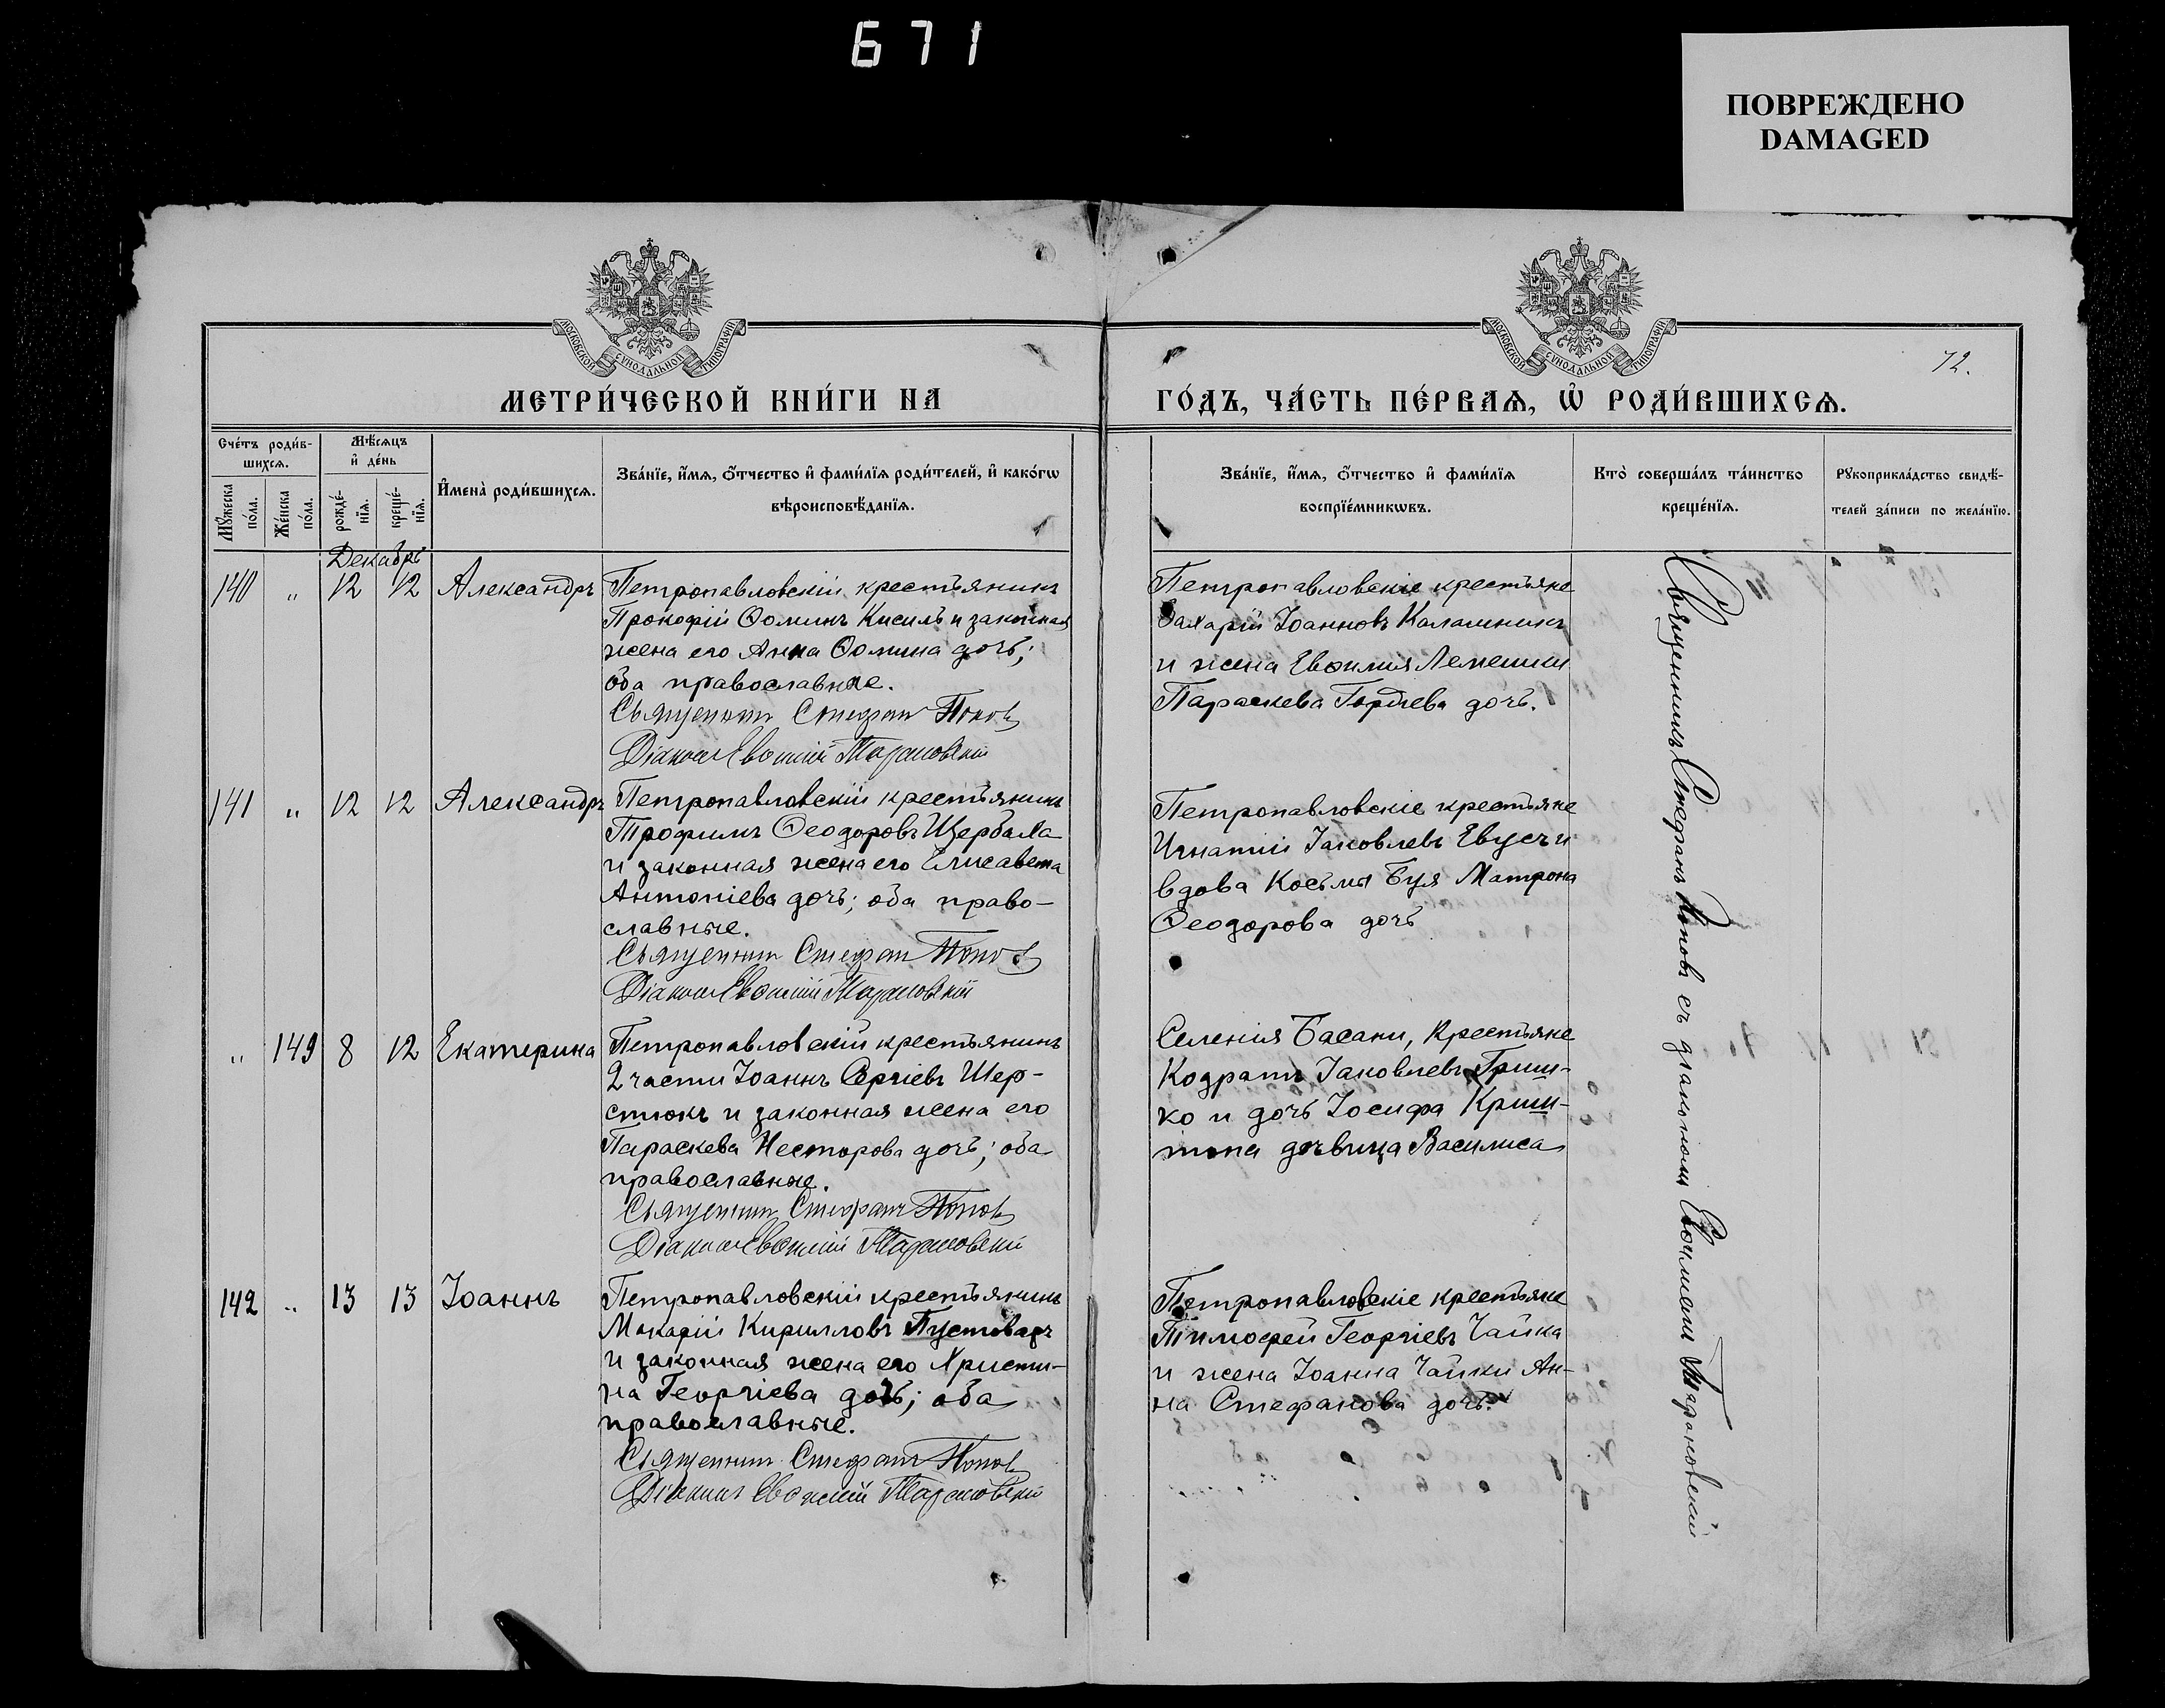 671
ПОВРЕЖДЕНО
DAMAGED
МОСКОВСКОЙ СѴНОДАЛЬНОЙ ТИПОГРАФІИ
МОСКОВСКОЙ СѴНОДАЛЬНОЙ ТИПОГРАФІИ
72.
МЕТРИ́ЧЕСКОЙ КНИ́ГИ НА
ГО́ДЪ, ЧА́СТЬ ПЕ́РВАѦ, Ѡ҆ РОДИ́ВШИХСѦ.
Сче́тъ роди́в-
шихсѧ.
Мꙋ́жеска
по́ла.
Же́нска
по́ла.
Мѣ́сѧцъ
и҆ де́нь
рожде́-
нїѧ.
креще́-
нїѧ.
И҆мена̀ роди́вшихсѧ.
Зва́нїе, и҆́мѧ, ѻ҆́тчество и҆ фами́лїѧ роди́телей, и҆ како́гѡ
вѣроисповѣ́данїѧ.
Зва́нїе, и҆́мѧ, ѻ҆́тчество и҆ фами́лїѧ
воспрїе́мникѡвъ.
Кто̀ соверша́лъ та́инство
креще́нїѧ.
Рꙋкоприкла́дство свидѣ́-
телей за́писи по жела́нїю.
Декабрь
140 " 12 12 Александръ
Петропавловскій крестьянинъ
Прокофій Ѳоминъ Кисиль и законная
жена его Анна Ѳомина дочь;
оба православные.
Священникъ Стефанъ Поповъ
Діаконъ Евѳимій Тарановскій
Петропавловскіе крестьяне
Захарій Іоанновъ Калашникъ
и жена Евѳимія Лемешки
Параскева Гордіева дочь.
141 " 12 12 Александръ
Петропавловскій крестьянинъ
Трофимъ Ѳеодоровъ Щербаха
и законная жена его Елисавета
Антоніева дочь; оба право-
славные.
Священникъ Стефанъ Поповъ
Діаконъ Евѳимій Тарановскій
Петропавловскіе крестьяне
Игнатій Іаковлевъ Евусъ и
вдова Косьмы Буя Матрона
Ѳеодорова дочь
" 149 8 12 Екатерина
Петропавловскій крестьянинъ
2 части Іоаннъ Сергіевъ Шер-
стюкъ и законная жена его
Параскева Несторова дочь; оба
православные.
Священникъ Стефанъ Поповъ
Діаконъ Евѳимій Тарановскій
Селенія Басани, Крестьяне
Кодратъ Іаковлевъ Гриш-
ко и дочь Іосифа Криш-
топа дѣвица Василиса
142 " 13 13 Іоаннъ
Петропавловскій крестьянинъ
Макарій Кирилловъ Пустоваръ
и законная жена его Христи-
на Георгіева дочь; оба
православные.
Священникъ Стефанъ Поповъ
Діаконъ Евѳимій Тарановскій
Петропавловскіе крестьяне
Тимофей Георгіевъ Чайка
и жена Іоанна Чайки Ан-
на Стефанова дочь.
Священникъ Стефанъ Поповъ съ діакономъ Евѳиміемъ Тарановскій